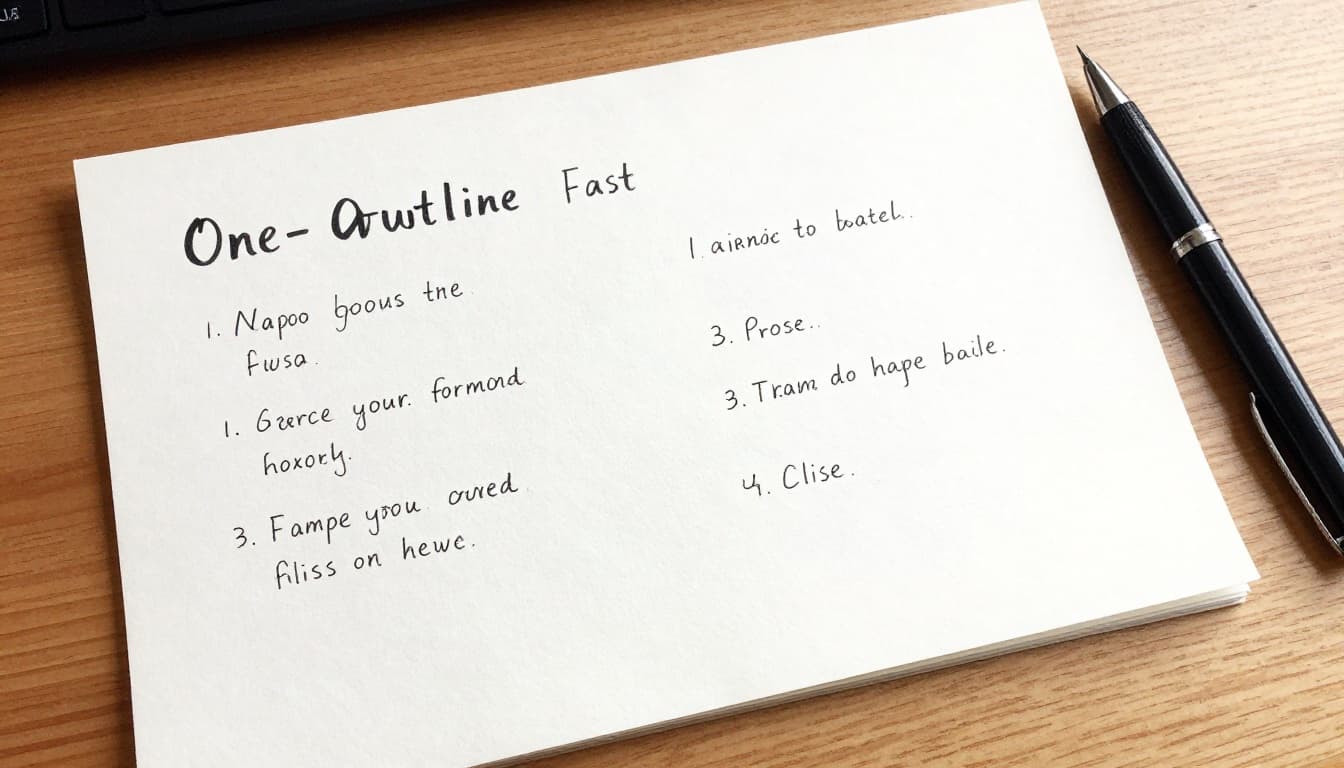 One-Orwtline Fast
1. Napoo boous tne
fwsa.
1. Gzerce your. formond
hoxorly.
3. Fampe yrou ovved
filiss on hewc.
1. to
3. Prose..
3. Tram do hape baile.
4. Clise.